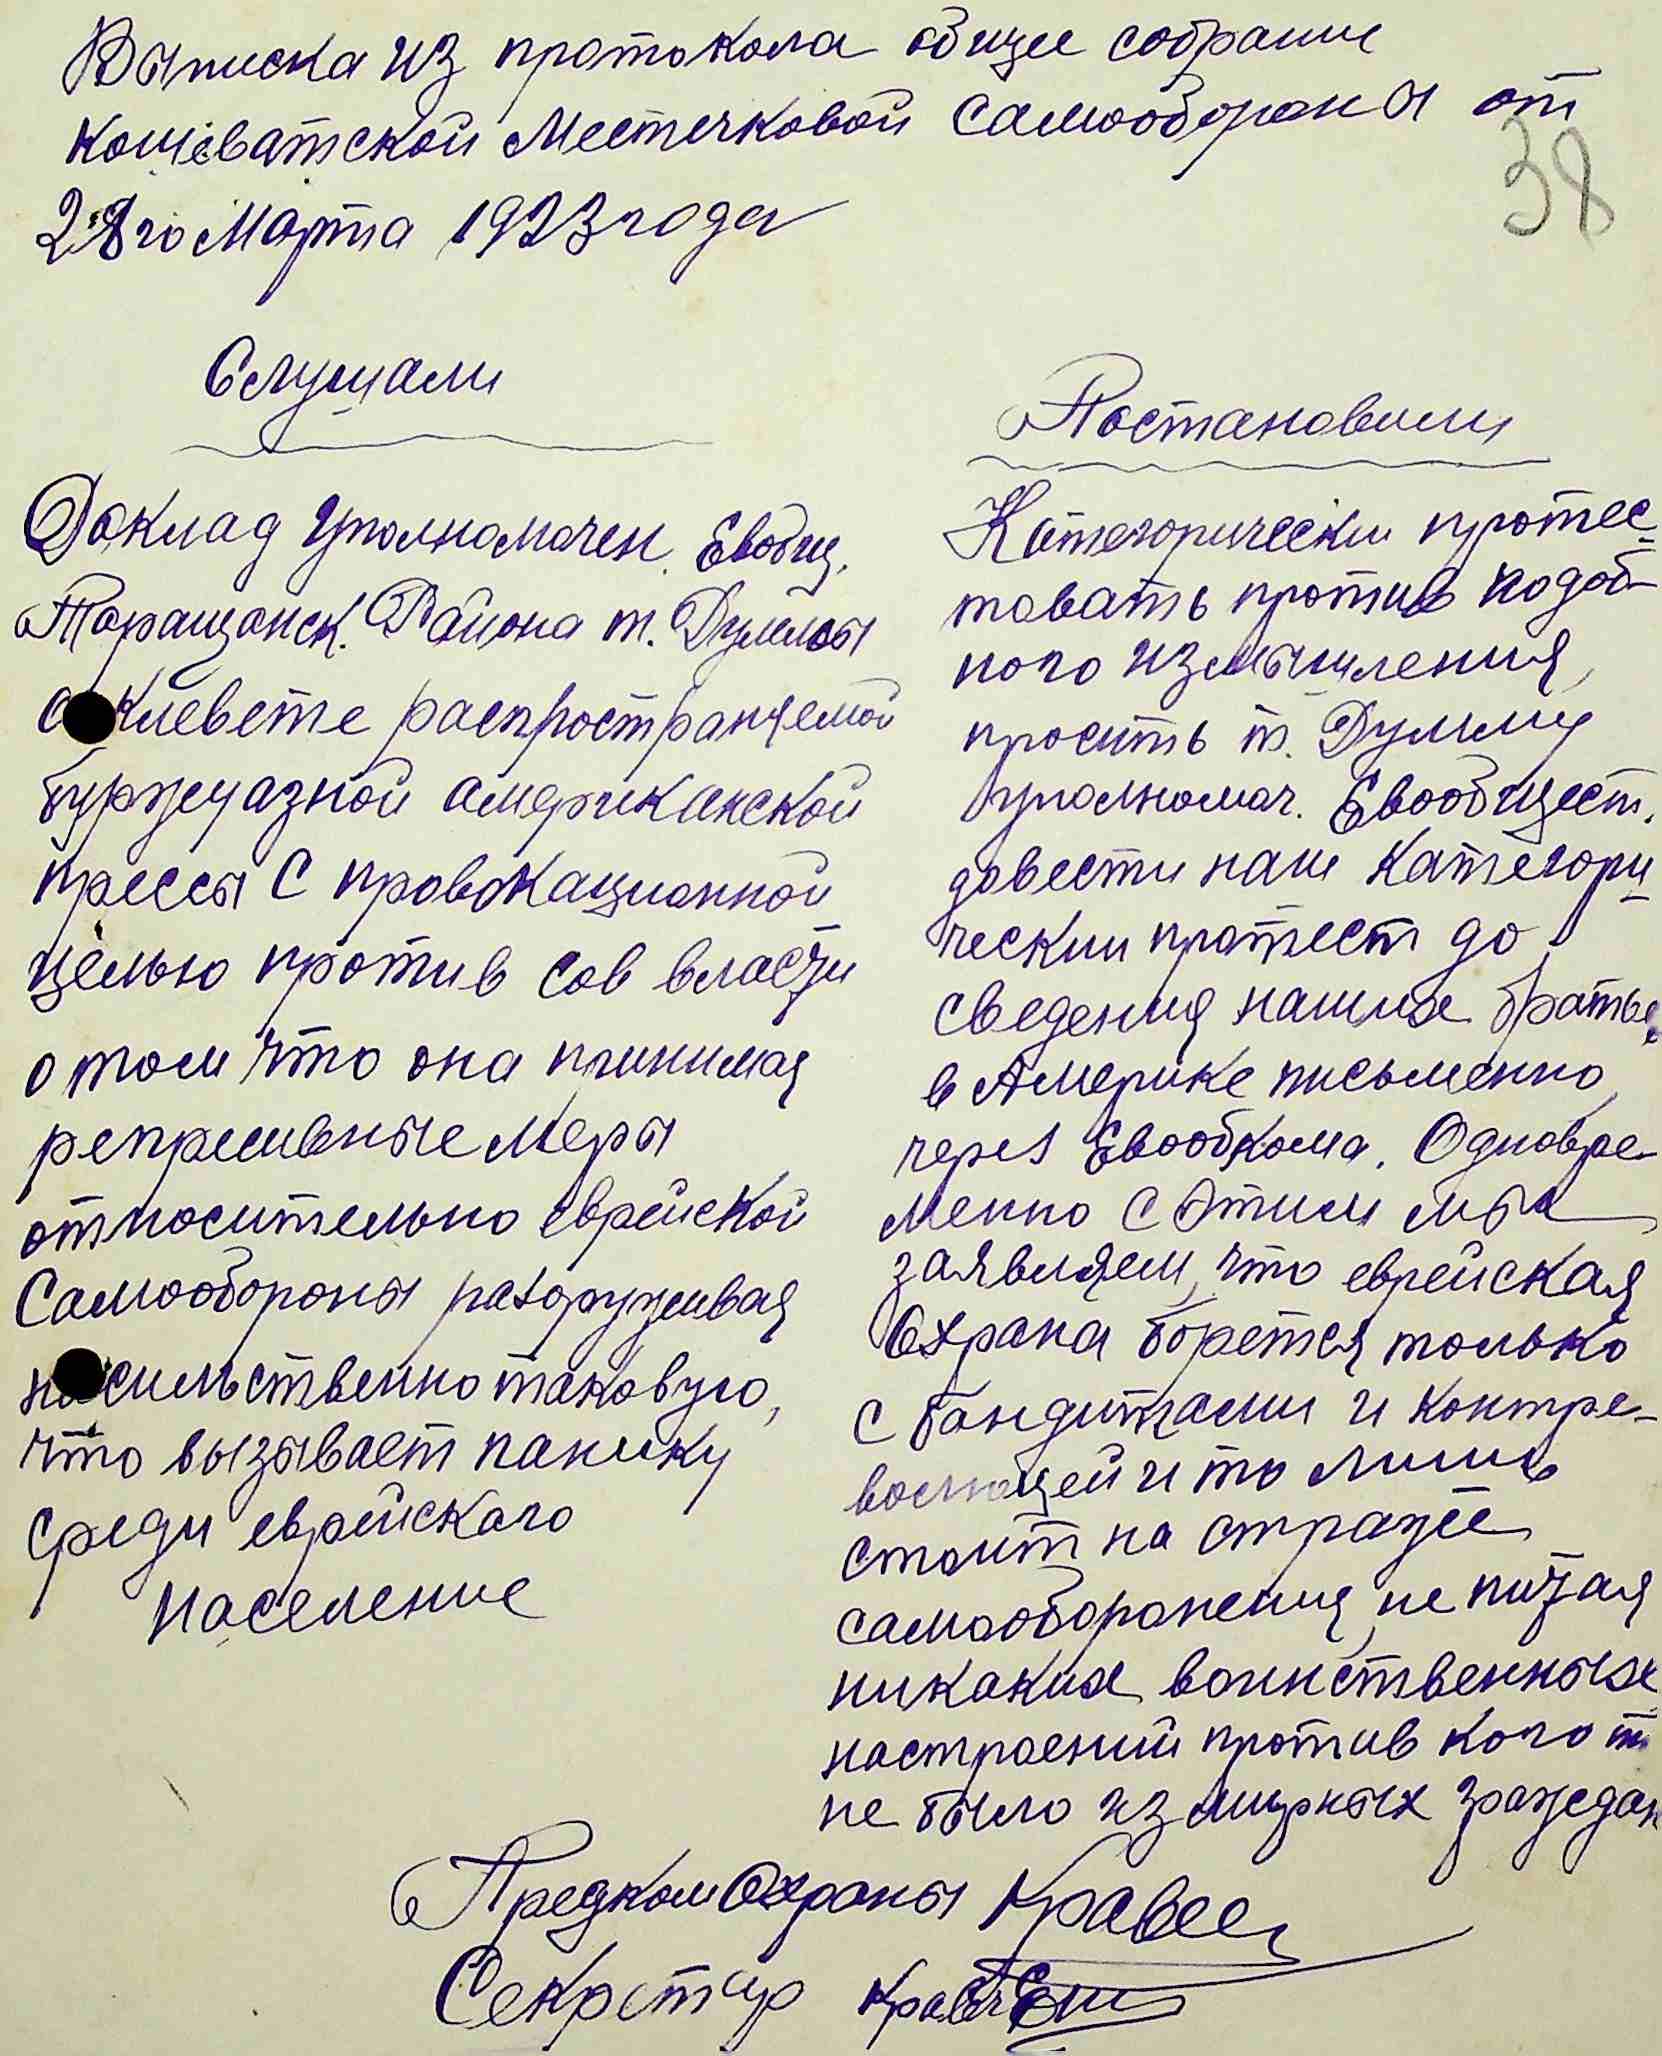 Выписка из протокола общее собрание
Кошеватской Местечковой самообороны от
38
28го Марта 1923 года
Слушали
Доклад уполномочен. Евобщ.
Таращанск. Района т. Дулмы
о клевете распространяемой
буржуазной американской
прессы с провокационной
целью против сов власти
о том что она принимая
репресивные меры
относительно еврейской
Самообороны разоруживая
насильственно таковую,
что вызывает панику
среди еврейского
население
Постановили
Категорически протес-
товать против подоб-
ного измышления,
просить т. Дулму
уполномоч. Евообщест.
довести наш категори-
ческии протест до
сведения наших братьев
в Америке письменно
через Евообкома. Одновре-
менно с этим мы
заявляем, что еврейская
Охрана борется только
с бандитами и контре-
волюцей и то лишь
стоит на страже
самооборонения, не питая
никаких воинственных
настроений против кого т
не было из мирных граждан
Предком Охраны Кравец
Секретар